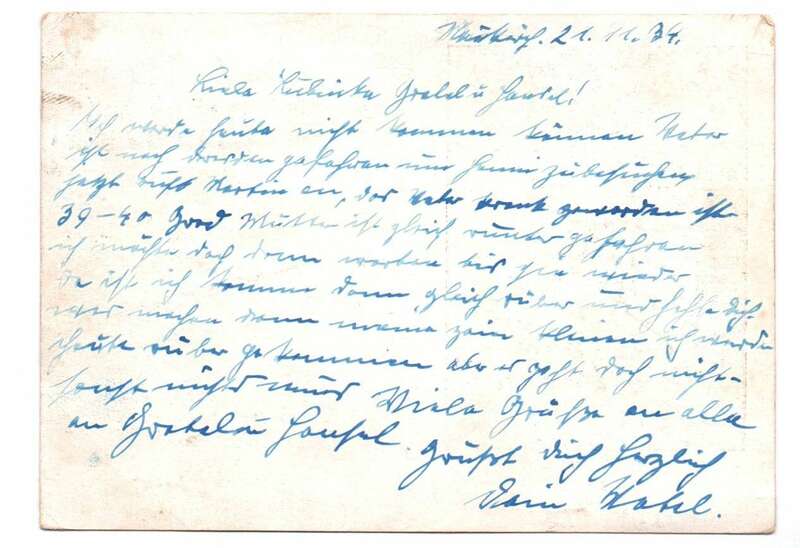 Neukirch. 21.11.34.
Liebe Gretel u Hansel!
Ich werde heute nicht kommen können Vater
ist nach dresden gefahren um Henni zubesuchen
jetzt ruft Martin an, das Vater krank geworden ist
39-40 Grad Mutter ist gleich runter gefahren
ich möchte doch dann warten bis sie wieder
da ist ich komme dann gleich rüber und
was machen denn meine kleinen ich werde
heute rüber gekommen aber es geht doch nicht
sonst nichts neues Viele Grüße an alle
an Gretel u Hansel. Grüßt dich herzlich
Dein